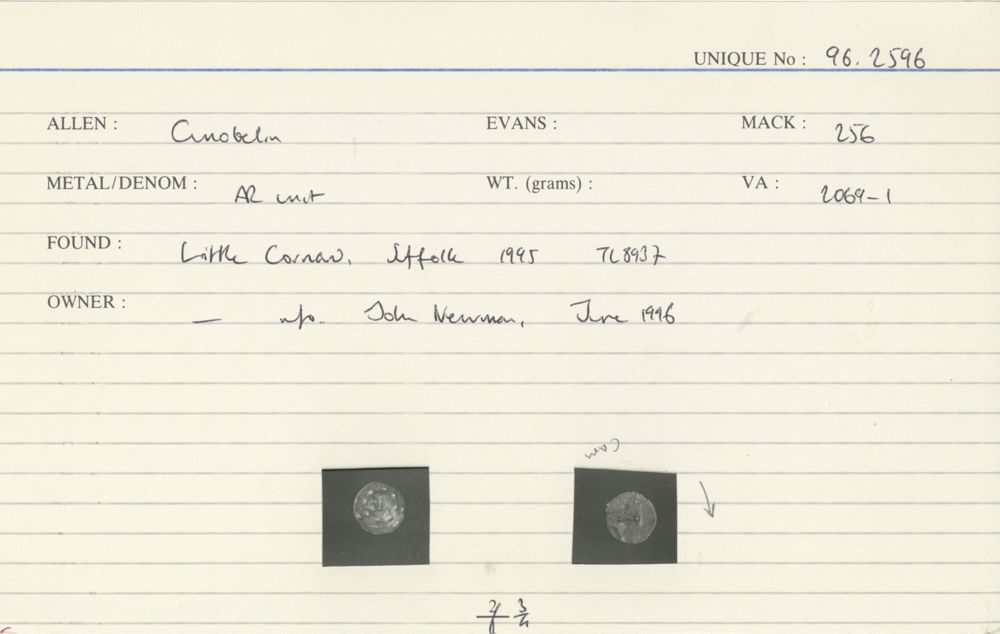 UNIQUE No : 96. 2596
ALLEN : Cunobelin EVANS : MACK : 256
METAL/DENOM : AR unit WT. (grams) : VA : 2069-1
FOUND : Little Cornard, Suffolk 1995 TL8937
OWNER : — info. John Newman, June 1996
Cam
3/4